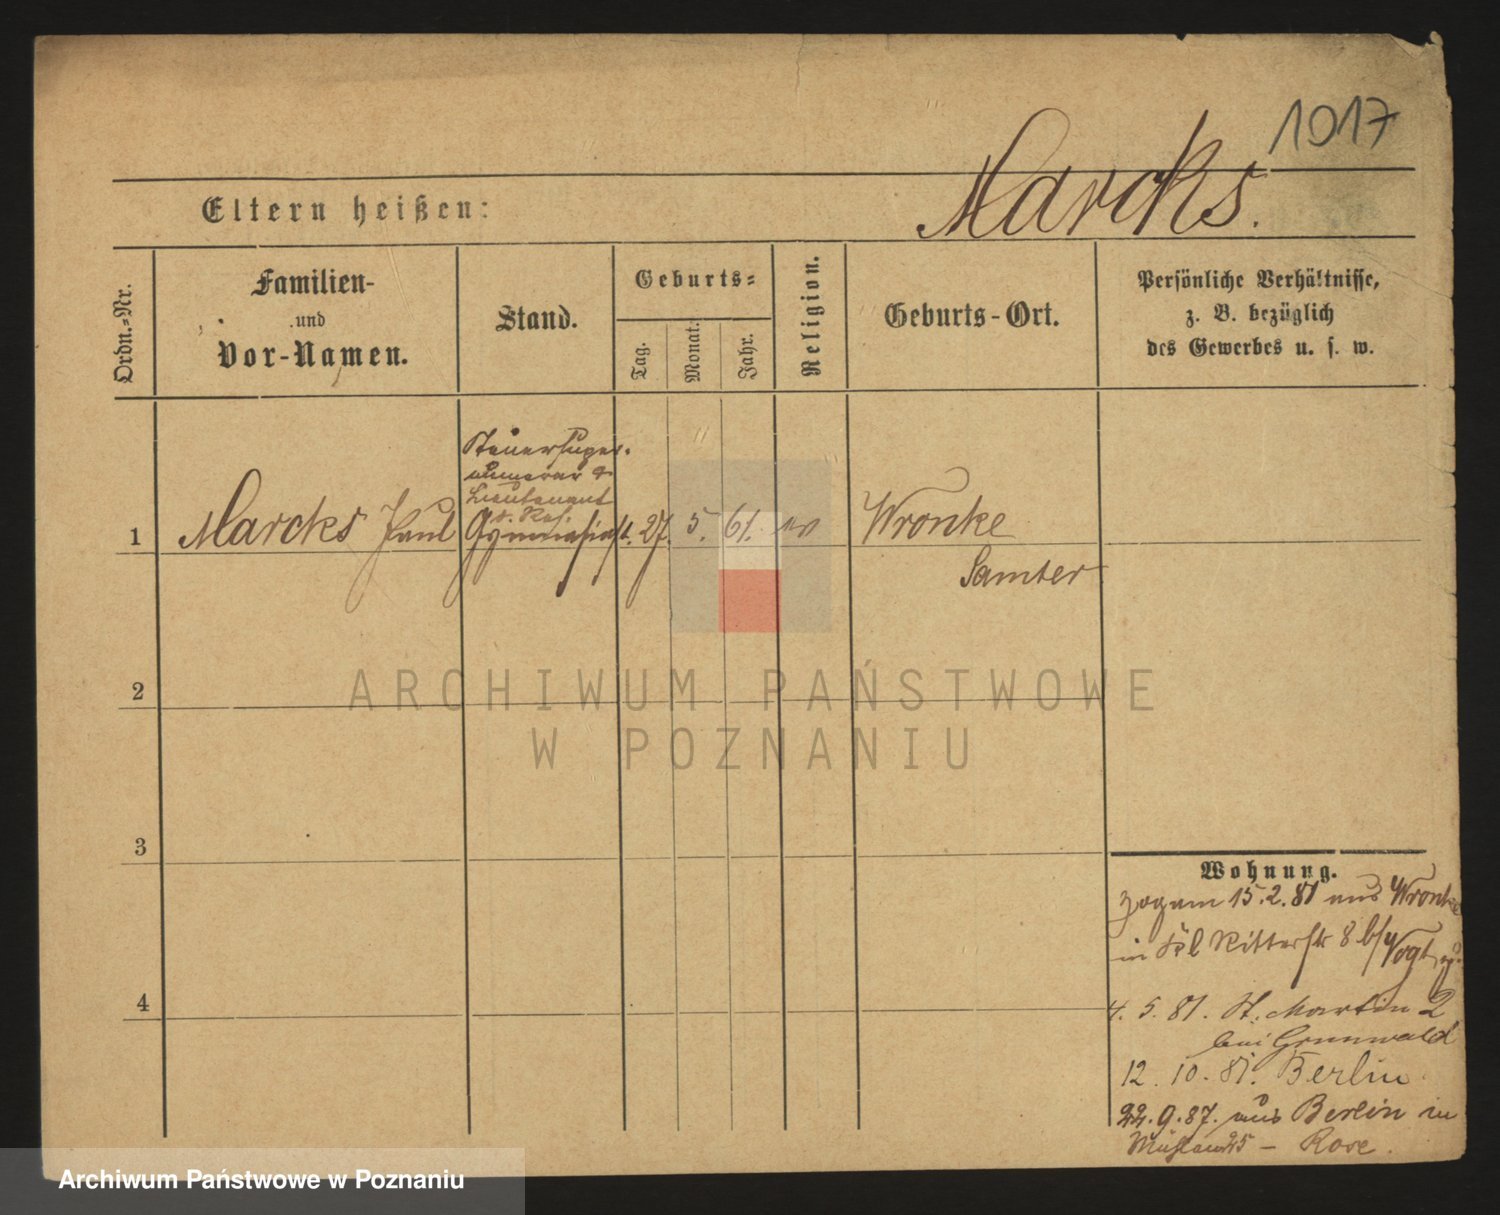 1017
Marcks.
Eltern heißen:
Ordn.-Nr.
Familien-
und
Vor-Namen.
Stand.
Geburts-
Tag.
Monat.
Jahr.
Religion.
Geburts-Ort.
Persönliche Verhältnisse,
z. B. bezüglich
des Gewerbes u. s. w.
Steuersuper-
numerar &
Lieutenant
d. Res.
1 Marcks Paul Gymnasiast. 27. 5. 61. ev Wronke
Samter
2
3
4
ARCHIWUM PAŃSTWOWE
W POZNANIU
Wohnung.
zog am 15.2.81 aus Wronke
in Kl Ritterstr 8 b/Vogt
4. 5. 81. St. Martin 2
bei Grunwald
12. 10. 81. Berlin
22.9.87. aus Berlin in
25 - Rose.
Archiwum Państwowe w Poznaniu